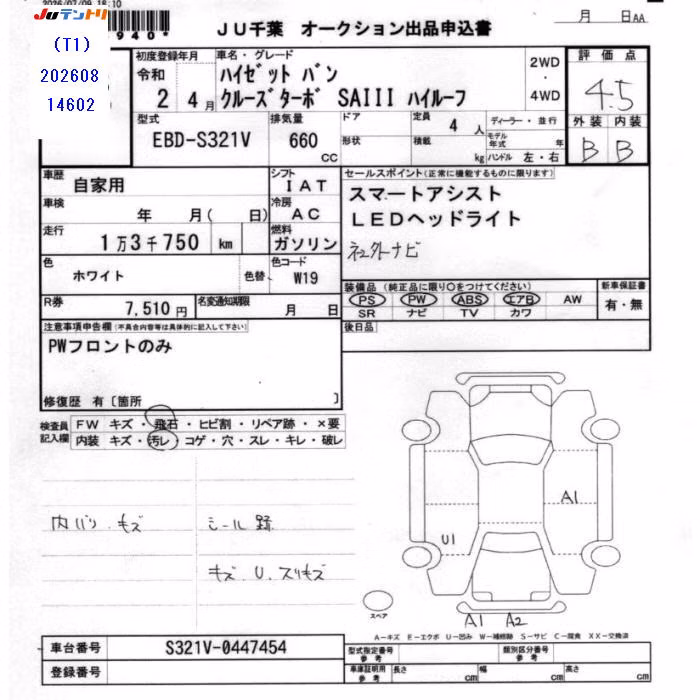 JUテントリ
(T1)
202608
14602
2026/07/09 18:10
*940*
JU千葉 オークション出品申込書
月 日AA
初度登録年月
令和
2年 4月
車名・グレード
ハイゼット バン
クルーズターボ SAIII ハイルーフ
2WD
・
4WD
評価点
4.5
外装 内装
B B
型式
EBD-S321V
排気量
660
cc
ドア
形状
定員
4 人
積載
kg
ディーラー・並行
モデル年式 年
ハンドル 左・右
車歴
自家用
シフト
IAT
車検
年 月( 日)
冷房
AC
走行
1万3千750 km
燃料
ガソリン
色
ホワイト
色替
色コード
W19
R券
7,510円
名変通知期限
月 日
セールスポイント(正常に機能するものに限ります)
スマートアシスト
LEDヘッドライト
社外ナビ
装備品(純正品に限り○をつけてください)
PS PW ABS エアB AW
SR ナビ TV カワ
新車保証書
有・無
後日品
注意事項申告欄(不具合内容等は具体的に記入して下さい)
PWフロントのみ
修復歴 有〔箇所 〕
検査員記入欄
FW キズ・飛石・ヒビ割・リペア跡・×要
内装 キズ・汚レ・コゲ・穴・スレ・キレ・破レ
内バリ キズ
シール跡
キズ、U、スリキズ
A1
U1
A1 A2
スペア
A−キズ E−エクボ U−凹み W−補修跡 S−サビ C−腐食 XX−交換済
車台番号
S321V-0447454
登録番号
型式指定番号
参考
類別区分番号
参考
車庫証明用
参考
長さ cm
幅 cm
高さ cm